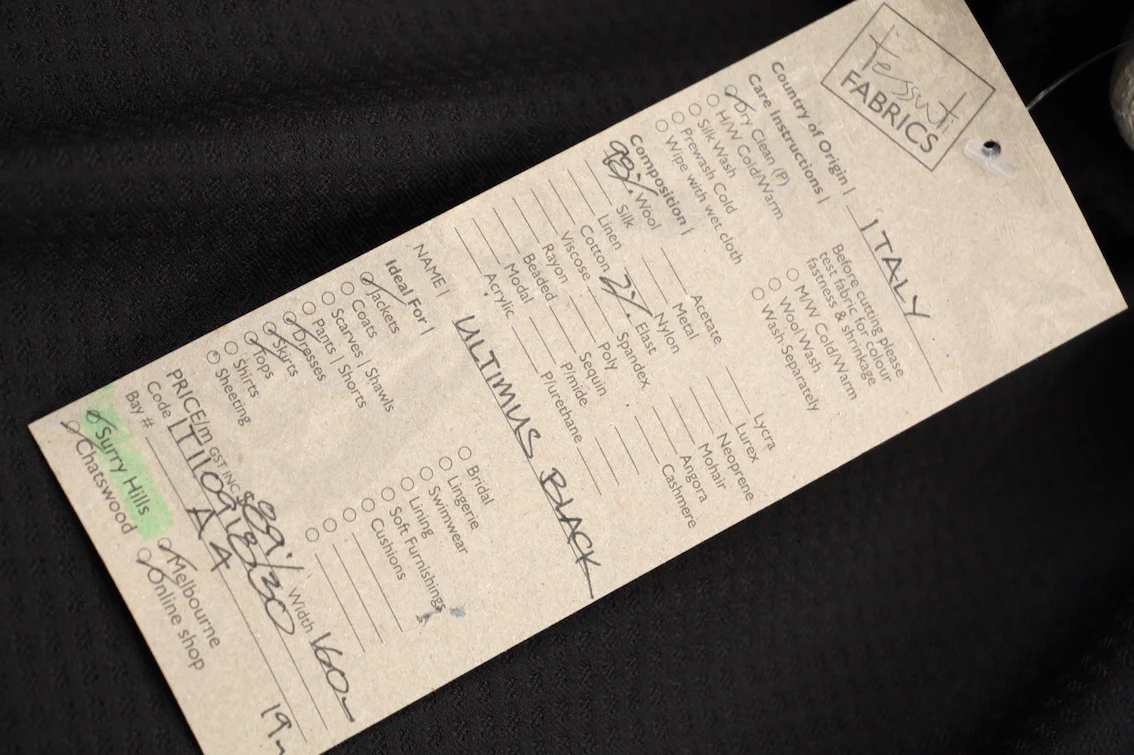 tessuti
FABRICS
Country of Origin | ITALY
Care Instructions |
Dry Clean (P)
H/W Cold/Warm
Silk Wash
Prewash Cold
Wipe with wet cloth
Before cutting please
test fabric for colour
fastness & shrinkage
M/W Cold/Warm
Wool Wash
Wash Separately
Composition |
98% Wool
Silk
Linen
Cotton
Viscose
Rayon
Beaded
Modal
Acrylic
Acetate
Metal
Nylon
2% Elast
Spandex
Poly
Sequin
P/mide
P/urethane
Lycra
Lurex
Neoprene
Mohair
Angora
Cashmere
NAME | ULTIMUS BLACK
Ideal For |
Jackets
Coats
Scarves | Shawls
Pants | Shorts
Dresses
Skirts
Tops
Shirts
Sheeting
Bridal
Lingerie
Swimwear
Lining
Soft Furnishings
Cushions
PRICE/m GST INC Width 160
Code
Bay # A4
Surry Hills
Chatswood
Melbourne
Online shop
19